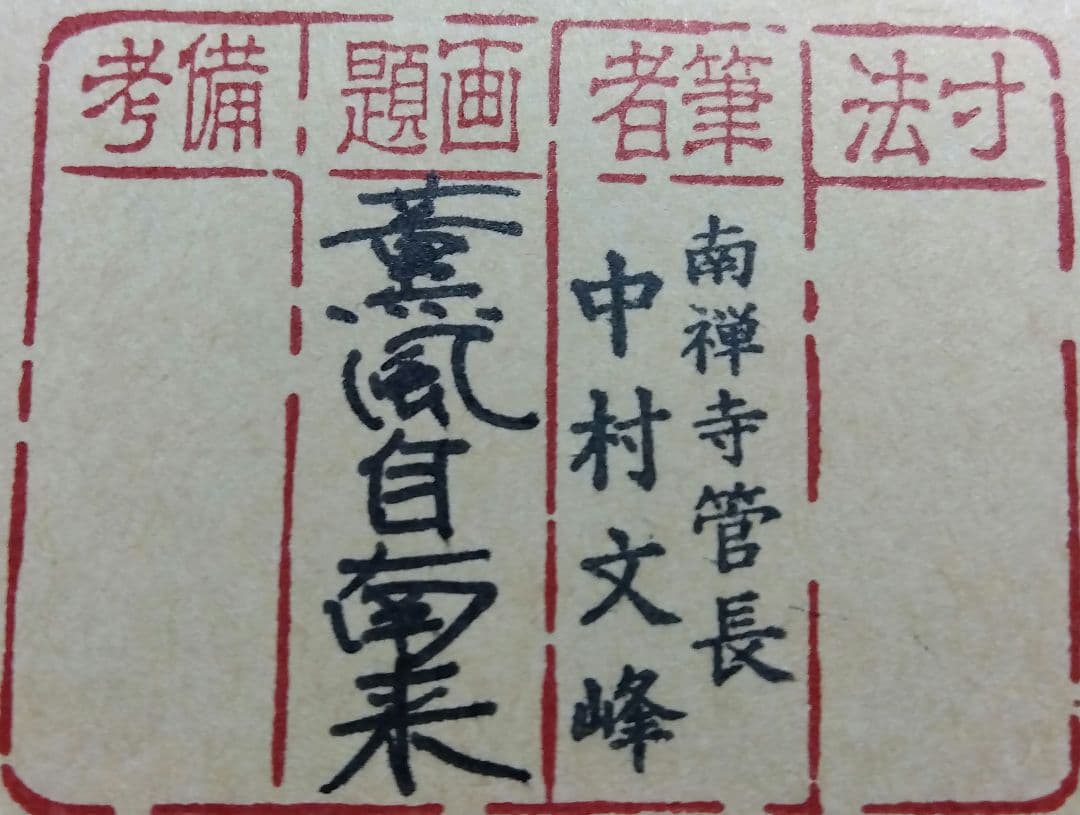 寸法
筆者
南禅寺管長
中村文峰
画題
薫風自南来
備考